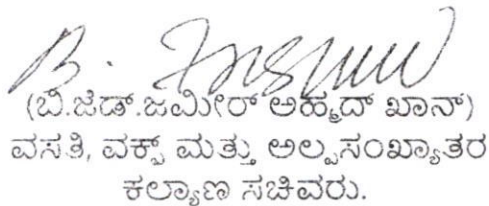 (ಬಿ.ಜೆಡ್.ಜಮೀರ್ ಅಹ್ಮದ್ ಖಾನ್)
ವಸತಿ, ವಕ್ಫ್ ಮತ್ತು ಅಲ್ಪಸಂಖ್ಯಾತರ
ಕಲ್ಯಾಣ ಸಚಿವರು.